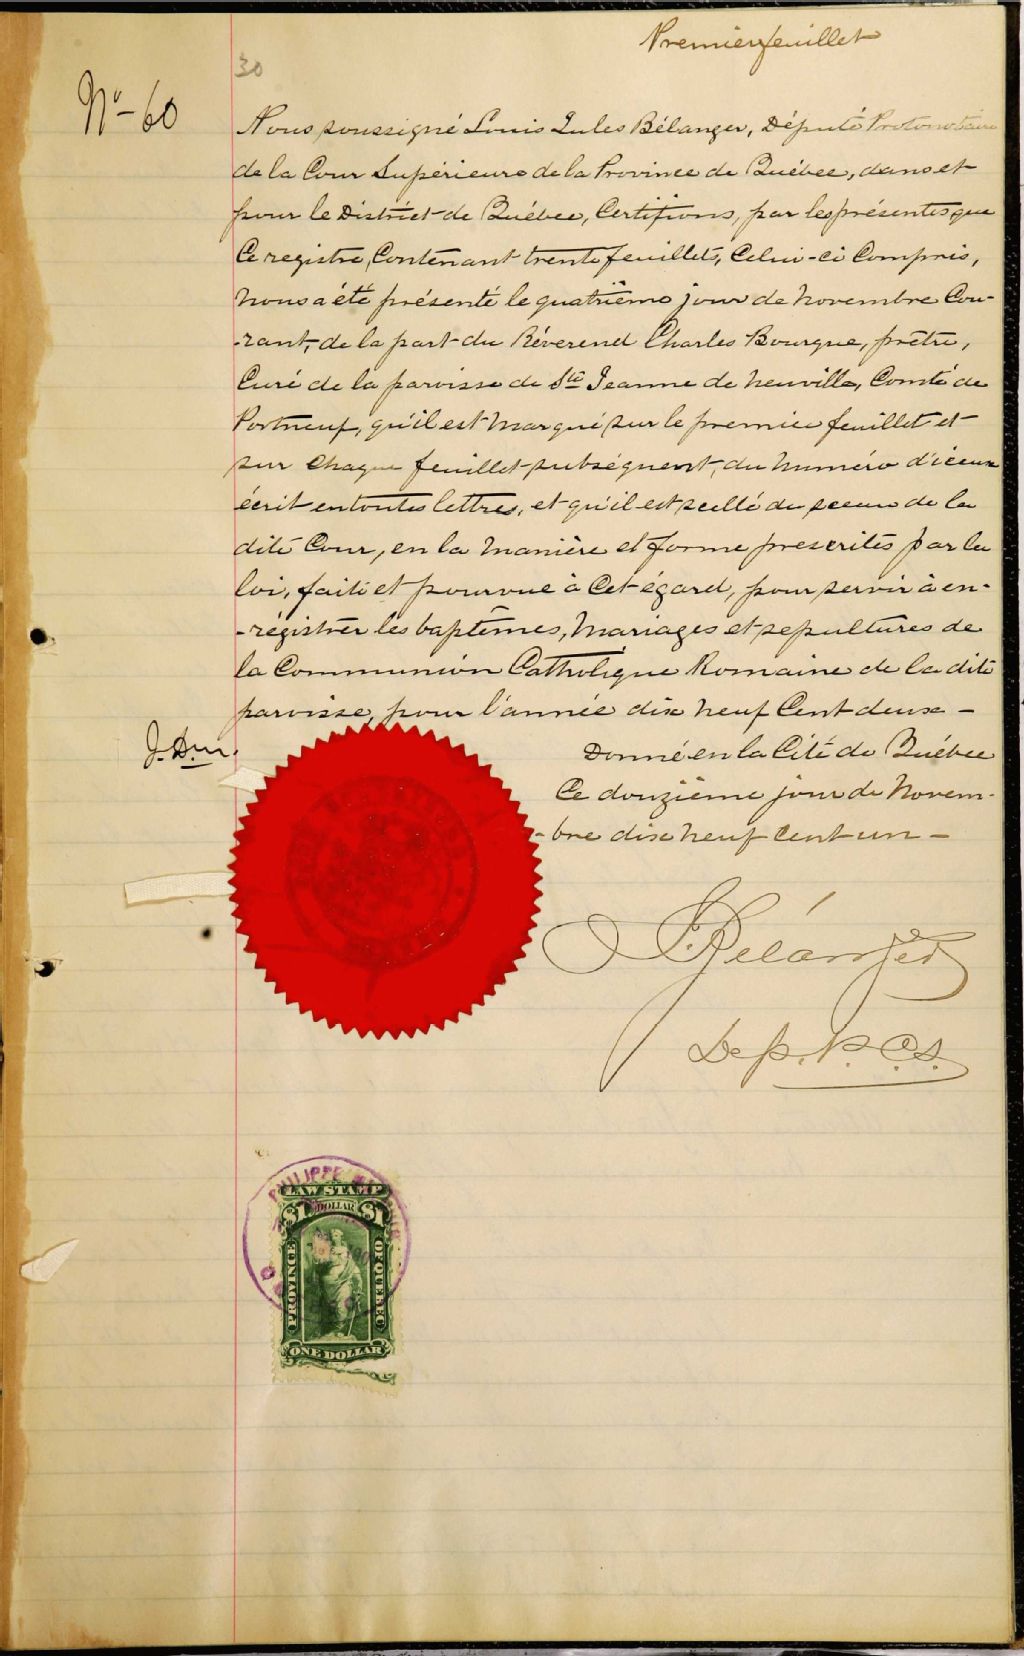 Premier feuillet
30
No - 60
Nous soussigné Louis Jules Bélanger, Député Protonotaire
de la Cour Supérieure de la Province de Québec, dans et
pour le District de Québec, Certifions, par les présentes que
Ce registre, Contenant trente feuillets, Celui-ci Compris,
nous a été présenté le quatrième jour de Novembre Cou-
-rant, de la part du Révérend Charles Bourque, prêtre,
Curé de la paroisse de Ste Jeanne de Neuville, Comté de
Portneuf, qu'il est marqué sur le premier feuillet et
sur chaque feuillet subséquent, du numéro d'iceux
écrit en toutes lettres, et qu'il est scellé du sceau de la
dite Cour, en la manière et forme prescrites par la
loi, faite et pourvue à Cet égard, pour servir à en-
-régistrer les baptêmes, Mariages et sépultures de
la Communion Catholique Romaine de la dite
paroisse, pour l'année dix neuf Cent deux -
Donné en la Cité de Québec
Ce douzième jour de Novem-
-bre dix neuf cent un -
Bélanger
Dep. P. C.S.
PHILIPPE
LAW STAMP
$1 DOLLAR $1
PROVINCE OF QUEBEC
ONE DOLLAR